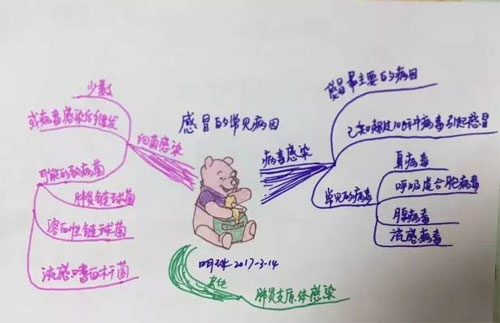 感冒的常见病因
细菌感染
少数
或病毒感染后继续
可能的致病菌
肺炎链球菌
溶血性链球菌
流感嗜血杆菌
病毒感染
感冒最主要的病因
已知超过100种病毒引起感冒
常见的病毒
鼻病毒
呼吸道合胞病毒
腺病毒
流感病毒
其他
肺炎支原体感染
2017-3-14